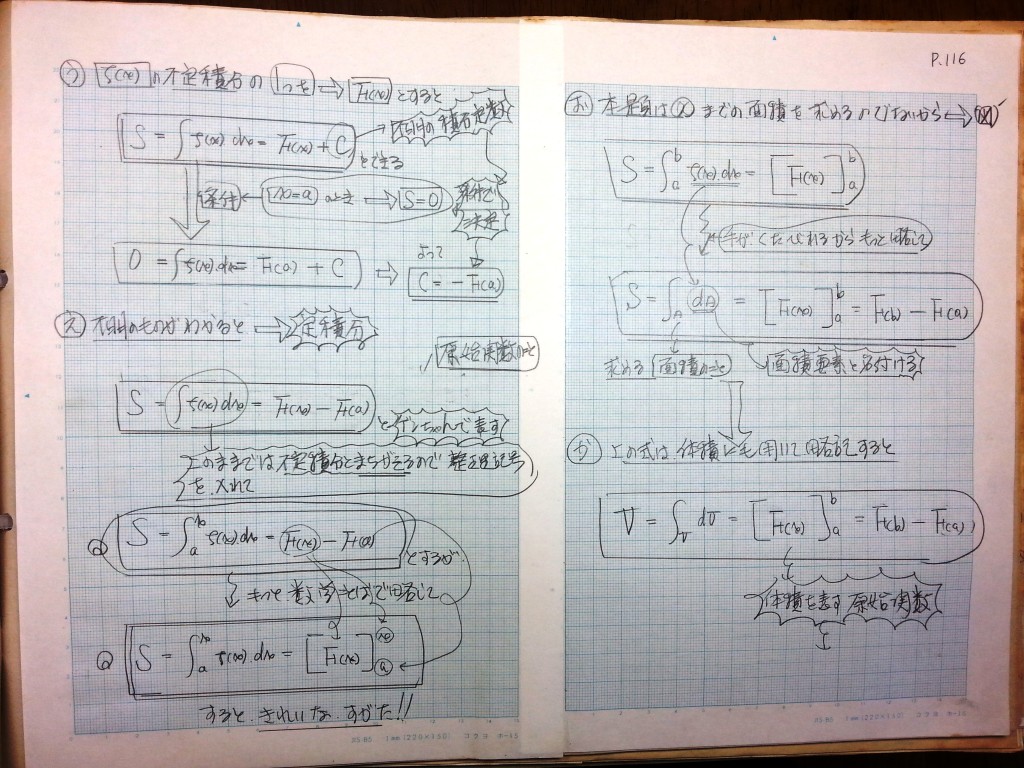 P.116
う f(x) の不定積分の 1つを ⇒ F(x) とすると
S = ∫ f(x) dx = F(x) + C とできる
不明の積分定数
条件 ← x=a のとき → S=0
条件で決定
0 = ∫ f(x)・dx = F(a) + C ⇒
よって
C = − F(a)
え 不明のものがわかると ⇒ 定積分
原始関数のこと
S = ∫ f(x) dx = F(x) − F(a) と ゲンちゃんで表す
このままでは不定積分とまちがえるので 整理記号
を入れて
S = ∫ₐˣ f(x) dx = F(x) − F(a) とするが
もっと数学ことばで略して
S = ∫ₐˣ f(x)・dx = [F(x)]ₐˣ
すると きれいな すがた!!
お 本題は x までの面積を求めるのでないから ⇒
S = ∫ₐᵇ f(x)・dx = [F(x)]ₐᵇ
手がくたびれるからもっと略して
S = ∫_A dA = [F(x)]ₐᵇ = F(b) − F(a)
求める 面積のこと
面積要素と名付ける
か この式は 体積にも用いて略記すると
V = ∫_V dv = [F(x)]ₐᵇ = F(b) − F(a)
体積を表す 原始関数
1mm(220×150) コクヨ
1mm(220×150) コクヨ